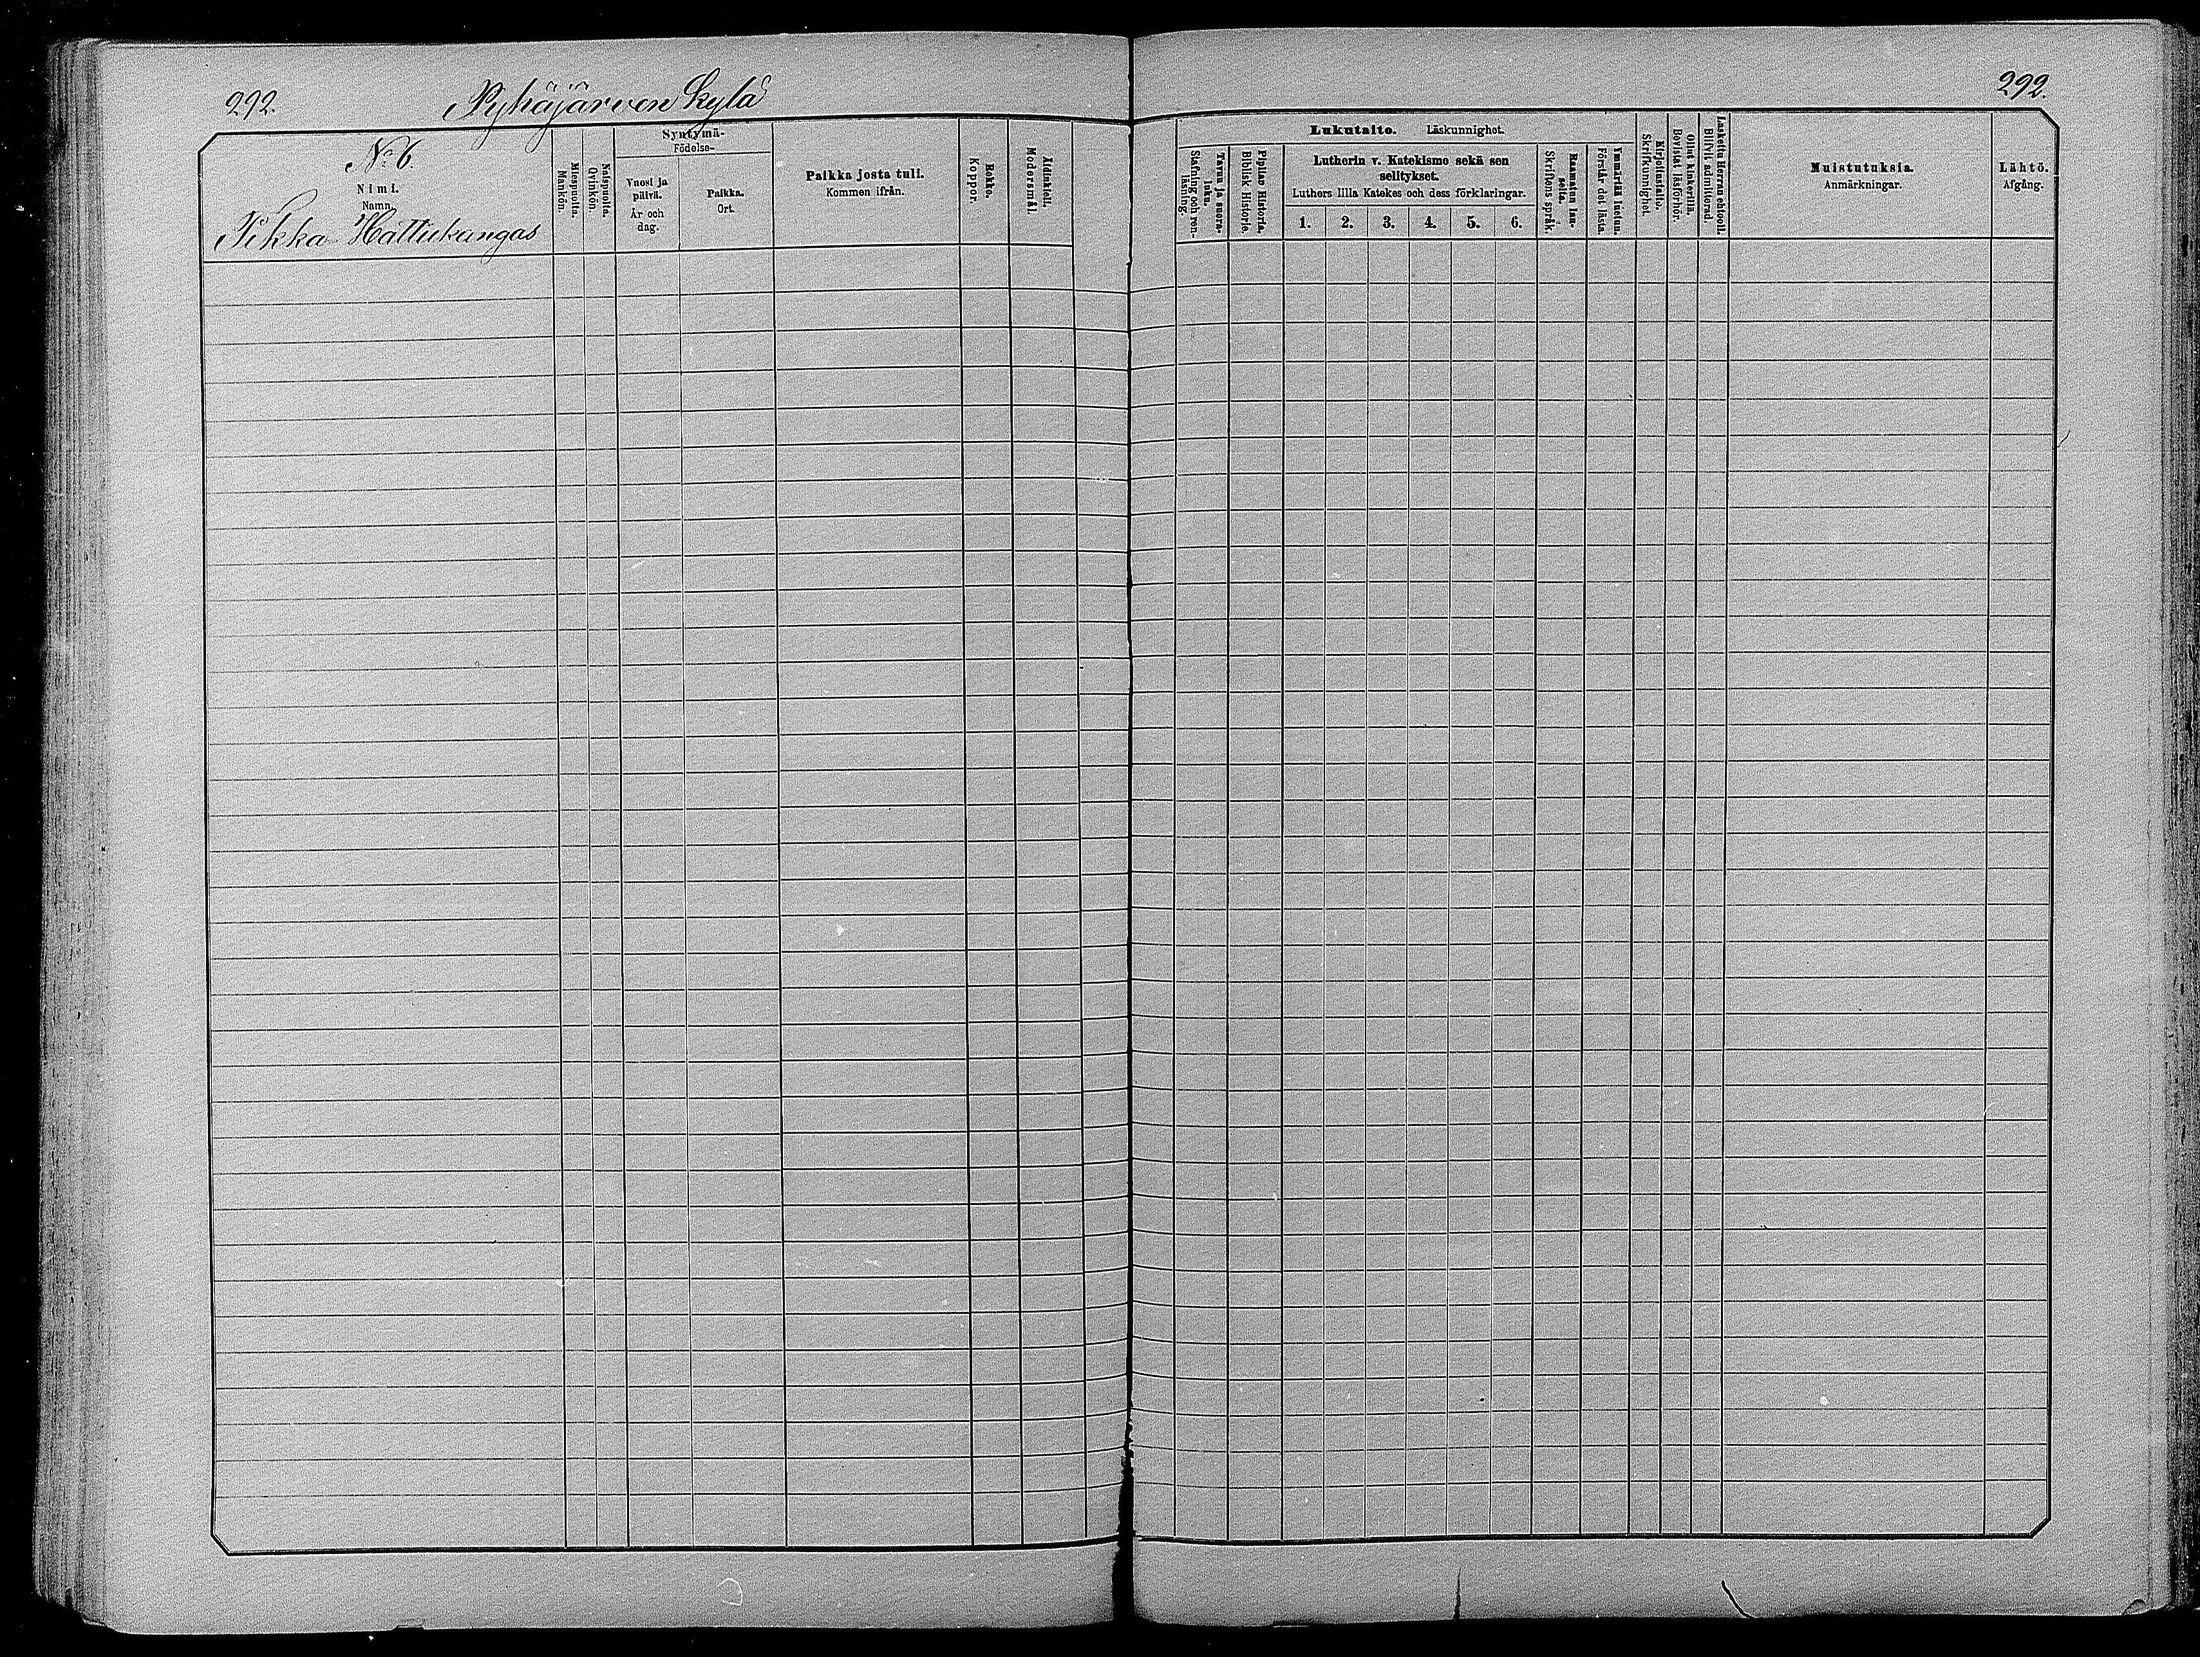 292.
Pyhäjärven kylä
292.
No 6.
Nimi.
Namn.
Pikka Hattukangas
Miespuolia.
Mankön.
Naispuolia.
Qvinkön.
Syntymä-
Födelse-
Vuosi ja
päivä.
År och
dag.
Paikka.
Ort.
Paikka josta tuli.
Kommen ifrån.
Rokko.
Koppor.
Äidinkieli.
Modersmål.
Lukutaito. Läskunnighet.
Tavuu ja suora-
luku.
Stafning och ren-
läsning.
Piplian Historia.
Biblisk Historie.
Lutherin v. Katekismo sekä sen
selitykset.
Luthers lilla Katekes och dess förklaringar.
1. 2. 3. 4. 5. 6.
Raamatun lau-
selta.
Skriftens språk.
Ymmärtää luetun.
Förstår det lästa.
Kirjoitustaito.
Skrifkunnighet.
Ollut kinkerillä.
Bevistat läsförhör.
Laskettu Herran ehtooll.
Blifvit admitterad.
Muistutuksia.
Anmärkningar.
Lähtö.
Afgång.